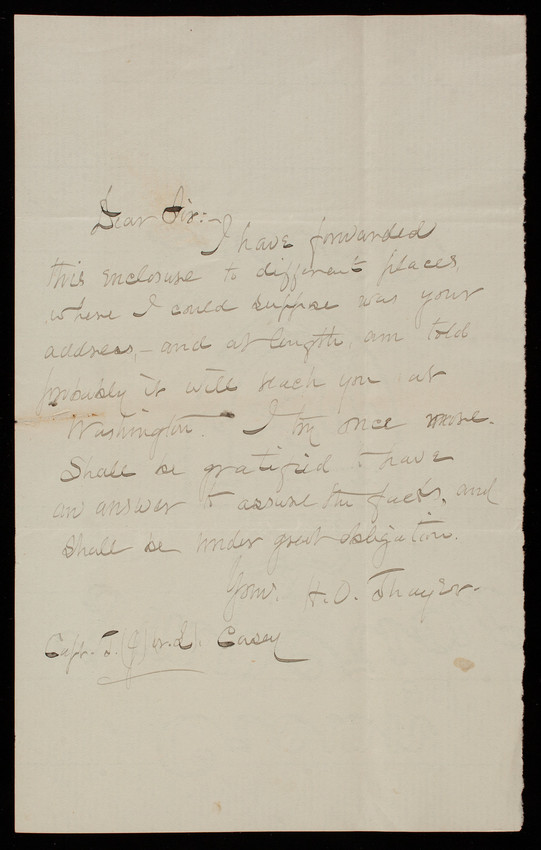 Dear Sir:-
I have forwarded
this enclosure to different places
where I could suppose was your
address,- and at length, am told
probably it will reach you at
Washington. I try once more.
Shall be gratified to have
an answer to assure the facts, and
shall be under great obligation.
Yours, H. O. Thayer.
Capt. T. (J) or L). Casey